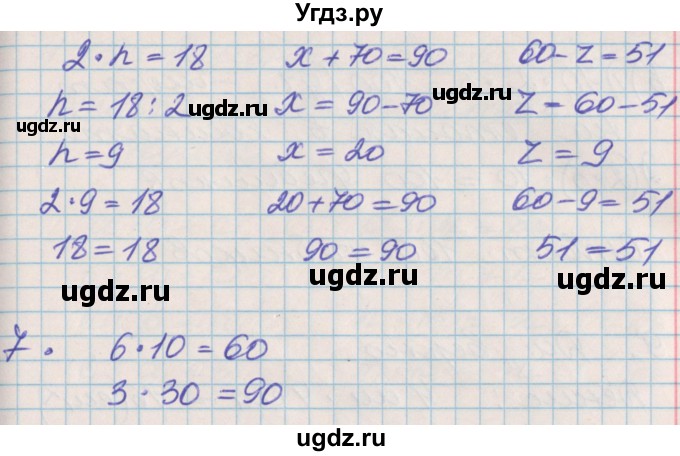 Угдз.ру
2·n = 18 x + 70 = 90 60 - z = 51
n = 18 : 2 x = 90 - 70 z = 60 - 51
ugdz.ru ugdz.ru ugdz.ru
n = 9 x = 20 z = 9
2·9 = 18 20 + 70 = 90 60 - 9 = 51
18 = 18 90 = 90 51 = 51
ugdz.ru ugdz.ru ugdz.ru
7. 6·10 = 60
3·30 = 90
ugdz.ru